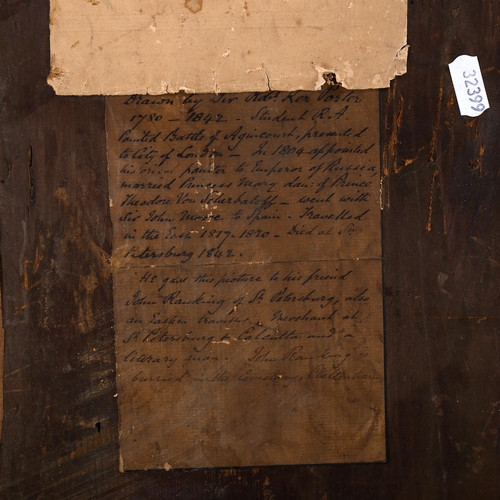 Drawn by Sir Robt. Ker Porter
1780 - 1842. - Student R.A
Painted Battle of Agincourt, presented
to City of London - In 1804 appointed
his painter to Emperor of Russia,
married Princess Mary dau: of Prince
Theodore Von Scherbatoff - went with
Sir John Moore to Spain - Travelled
in the East 1817-1820 - Died at St
Petersburg 1842.
He gave this picture to his friend
John Ranking of St Petersburg, also
an Eastern traveller, Merchant at
St Petersburg & Calcutta and a
literary man. John Ranking is
buried in the Cemetery, Cheltenham
32399